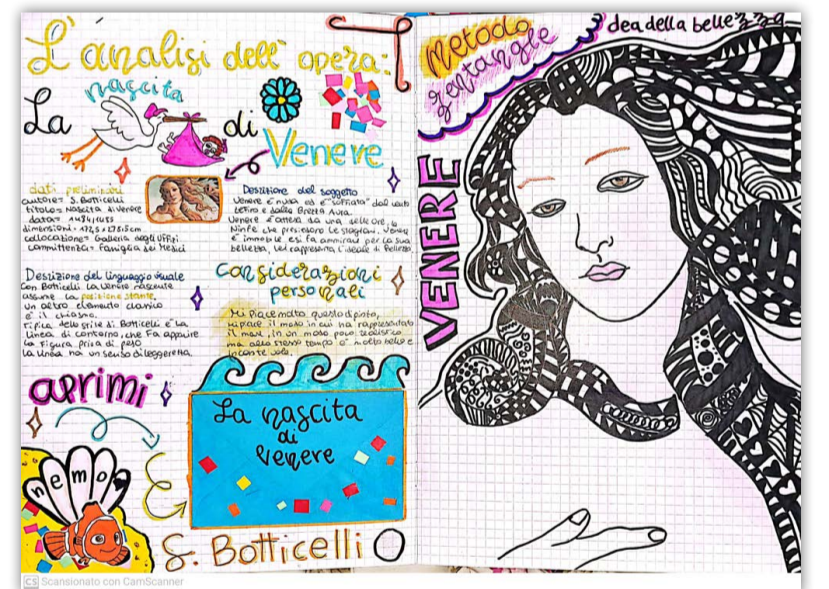 L'analisi dell'opera:
La nascita
di
Venere
dati preliminari
autore= S. Botticelli
titolo= Nascita di Venere
data= 1484/1485
dimensioni= 172,5 x 278,5 cm
collocazione= Galleria degli Uffizi
committenza= Famiglia dei Medici
Descrizione del soggetto
Venere è nuda ed è "soffiata" dal vento
e dalla Brezza Aura.
Venere è attesa da una delle ore, le
Ninfe che presiedono le stagioni. Venere
è immobile e si fa ammirare per la sua
bellezza, lei rappresenta l'ideale di Bellezza.
Descrizione del linguaggio visuale
Con Botticelli la Venere nascente
assume la posizione stante,
un altro elemento classico
è il chiasmo.
Tipica dello stile di Botticelli è la
linea di contorno, che fa apparire
la figura priva di peso
la linea ha un senso di leggerezza.
considerazioni
personali
Mi piace molto questo dipinto,
mi piace il modo in cui ha rappresentato
il mare, in un modo poco realistico
ma allo stesso tempo è molto bello e
incantevole.
aprimi
La nascita
di
venere
nemo
S. Botticelli
Metodo
zentangle
dea della bellezza
VENERE
CS Scansionato con CamScanner